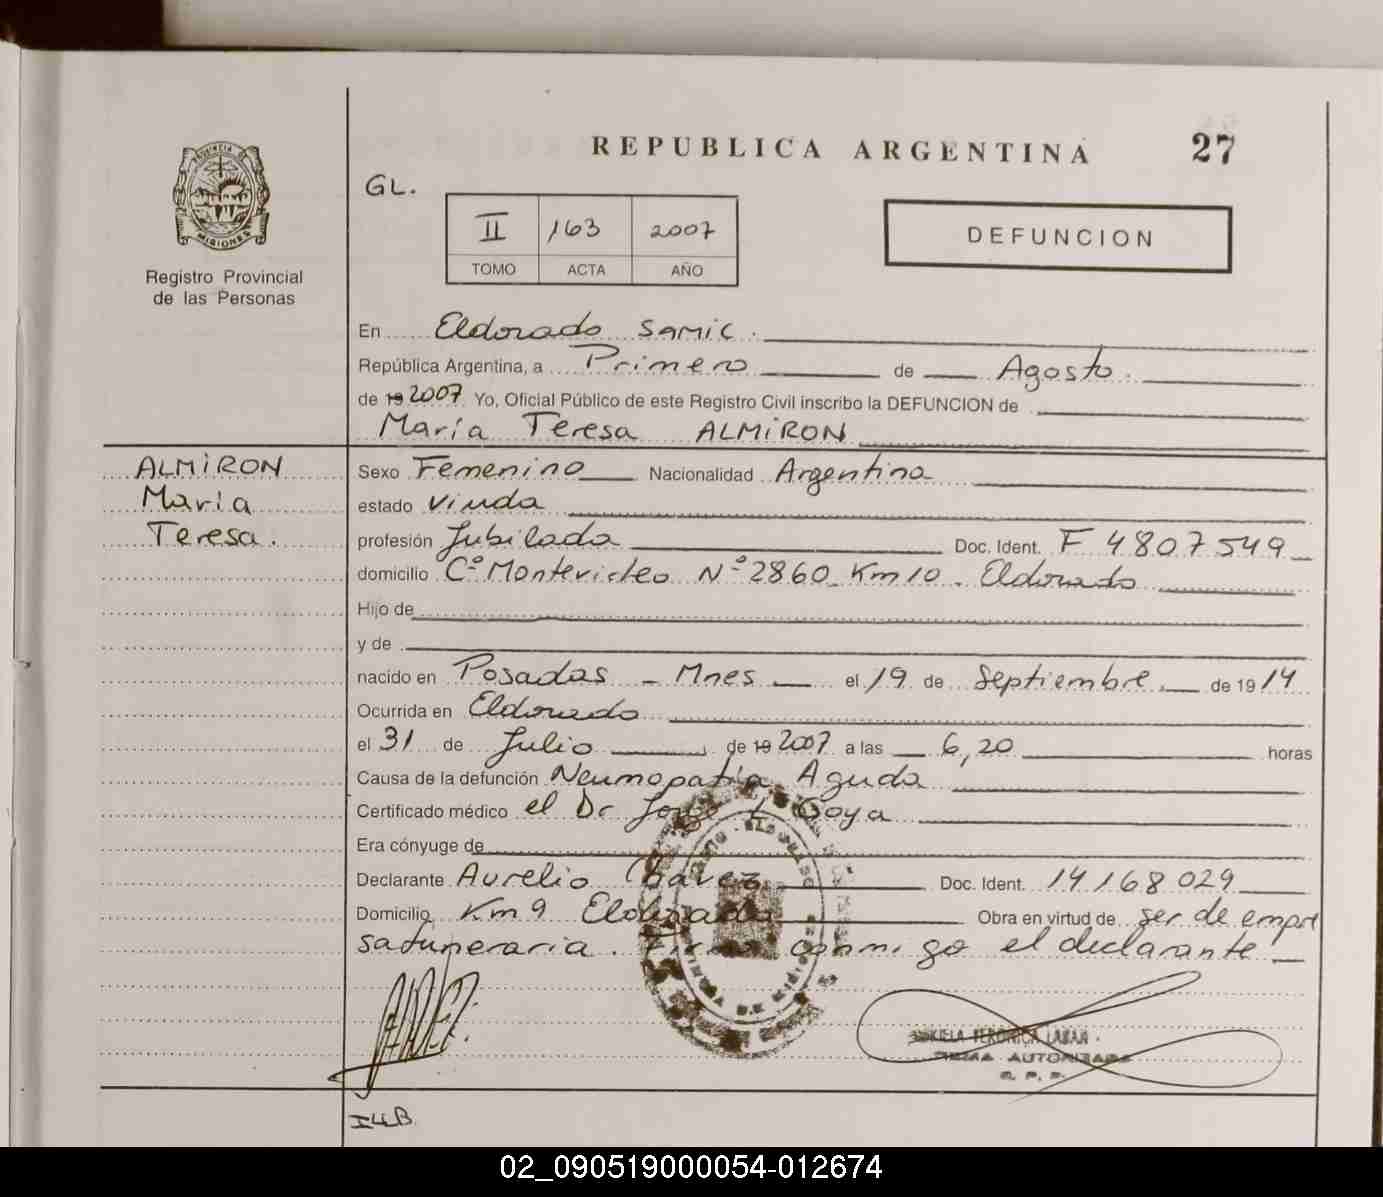 REPUBLICA ARGENTINA 27
PROVINCIA DE MISIONES
Registro Provincial
de las Personas
GL.
II 163 2007
TOMO ACTA AÑO
DEFUNCION
En Eldorado SAMIC.
República Argentina, a Primero de Agosto.
de 19 2007 Yo, Oficial Público de este Registro Civil inscribo la DEFUNCION de
María Teresa ALMIRON
ALMIRON
María
Teresa.
Sexo Femenino Nacionalidad Argentina
estado Viuda
profesión Jubilada Doc. Ident. F 4807549
domicilio Cº Montevideo Nº 2860 Km 10 - Eldorado
Hijo de
y de
nacido en Posadas - Mnes el 19 de Septiembre. de 19 14
Ocurrida en Eldorado
el 31 de Julio de 19 2007 a las 6,20 horas
Causa de la defunción Neumopatía Aguda
Certificado médico el Dr Jorge L Goya
Era cónyuge de
Declarante Aurelio Chavez Doc. Ident. 14168029
Domicilio Km 9 Eldorado Obra en virtud de ser de empre
sa funeraria. Firma conmigo el declarante
VERONICA
FIRMA AUTORIZADA
R. P. P.
02_090519000054-012674